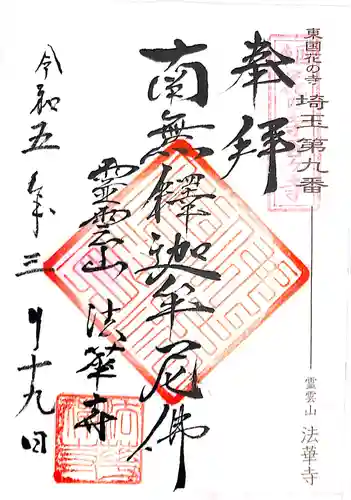 東国花の寺 埼玉第九番
霊雲山 法華寺
奉拝
南無釋迦牟尼佛
靈雲山 法華寺
令和五年三月十九日